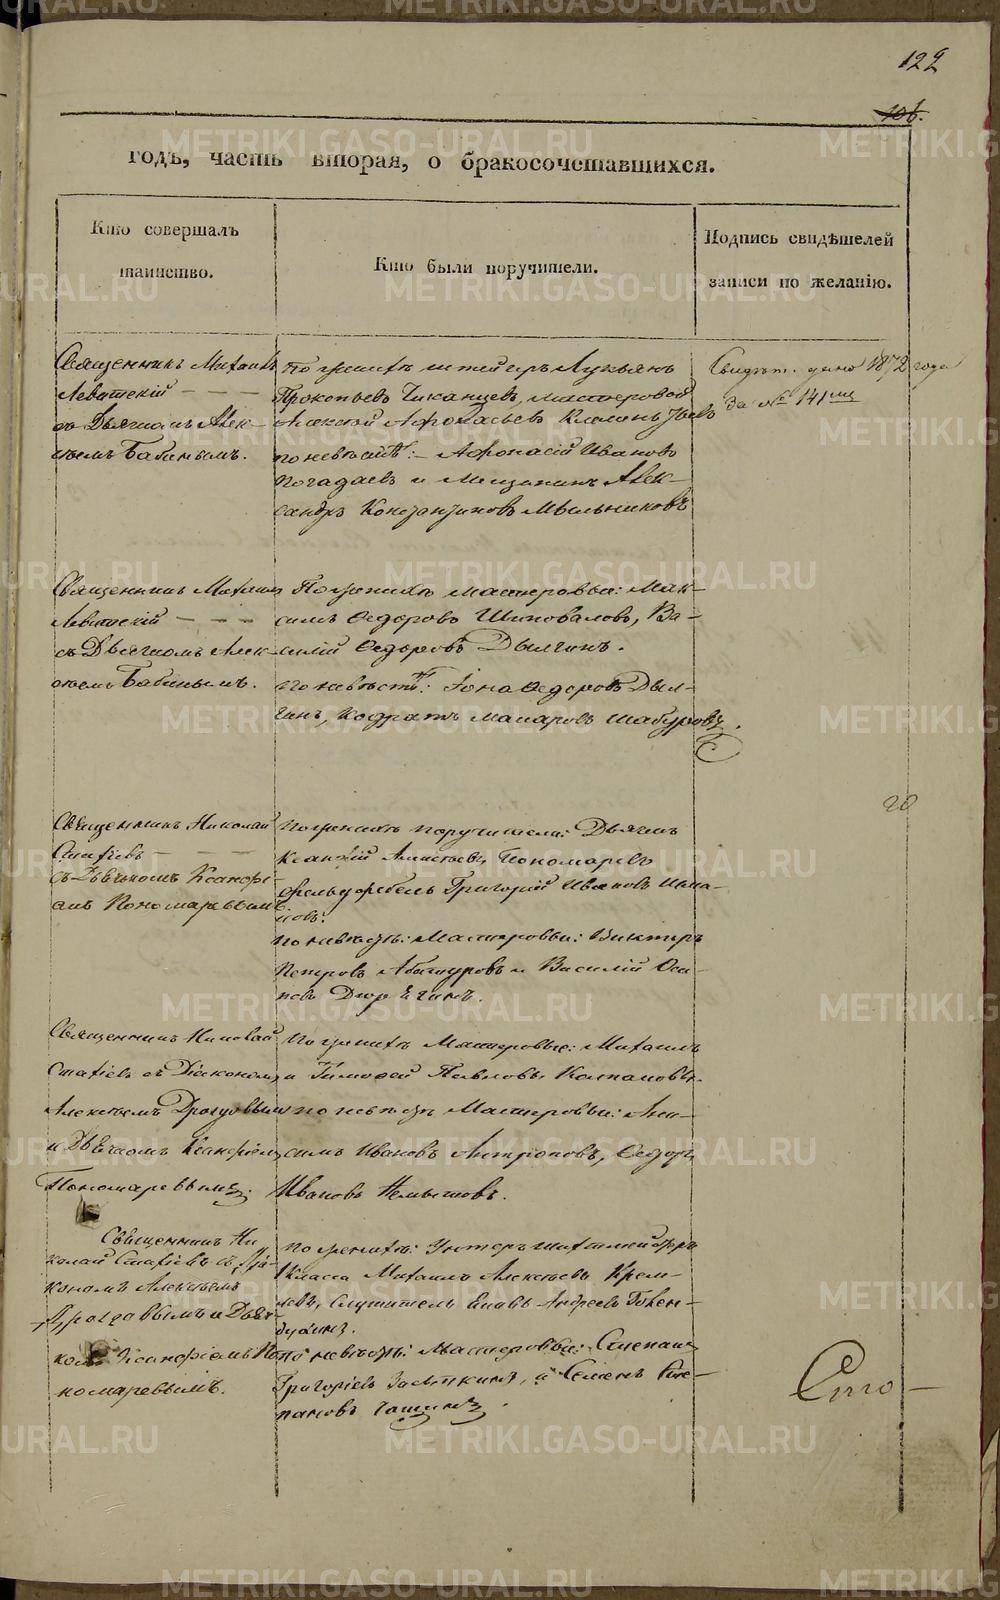 122
106.
годъ, часть вторая, о бракосочетавшихся.
Кто совершалъ
таинство.
Кто были поручители.
Подпись свидѣтелей
записи по желанію.
Священникъ Михаилъ
Левитскій
съ Дьячкомъ Алек-
сѣемъ Бабинымъ.
По женихѣ штейгеръ Лукьянъ
Прокопьевъ Чиканцевъ, мастеровой
Алексѣй Афонасьевъ
по невѣстѣ: Афонасій Ивановъ
Погадаевъ и Мещанинъ Алек-
сандръ Константиновъ Мыльниковъ
Свидѣт. дано 1872 года
За № 141
Священникъ Михаилъ
Левитскій
съ Дьячкомъ Алек-
сѣемъ Бабинымъ.
По женихѣ мастеровые: Мак-
симъ Ѳедоровъ Шиповаловъ, Ва-
силій Ѳедоровъ Дылгинъ.
По невѣстѣ: Іона Ѳедоровъ Дыл-
гинъ, Кодратъ Макаровъ Шабуровъ.
20
Священникъ Николай
Стафіевъ
съ Дьячкомъ Ксанфі-
емъ Пономаревымъ.
По женихѣ поручители: Дьячекъ
Ксанфій Алексѣевъ Пономаревъ
фельдфебель Григорій Ивановъ
новъ:
по невѣстѣ: Мастеровые: Викторъ
Петровъ Абатуровъ и Василій Оси-
повъ
Священникъ Николай
Стафіевъ съ Діакономъ
Алексѣемъ Дроздовымъ
и Дьячкомъ Ксанфіемъ
Пономаревымъ.
По женихѣ Мастеровые: Михаилъ
и Тимоѳей Павловы Колпаковы.
по невѣстѣ Мастеровые: Ани-
симъ Ивановъ Антроповъ, Ѳедоръ
Ивановъ Немытовъ.
Священникъ Ни-
колай Стафіевъ съ Діа-
кономъ Алексѣемъ
Дроздовымъ и Дьяч-
комъ Ксанфіемъ По-
номаревымъ.
по женихѣ: Унтеръ шихтмейстеръ
1 Класса Михаилъ Алексѣевъ Крем-
левъ, служитель Андреевъ
по невѣстѣ: Мастеровые: Степанъ
Григорьевъ и Семенъ Сте-
пановъ
Сто
METRIKI.GASO-URAL.RU